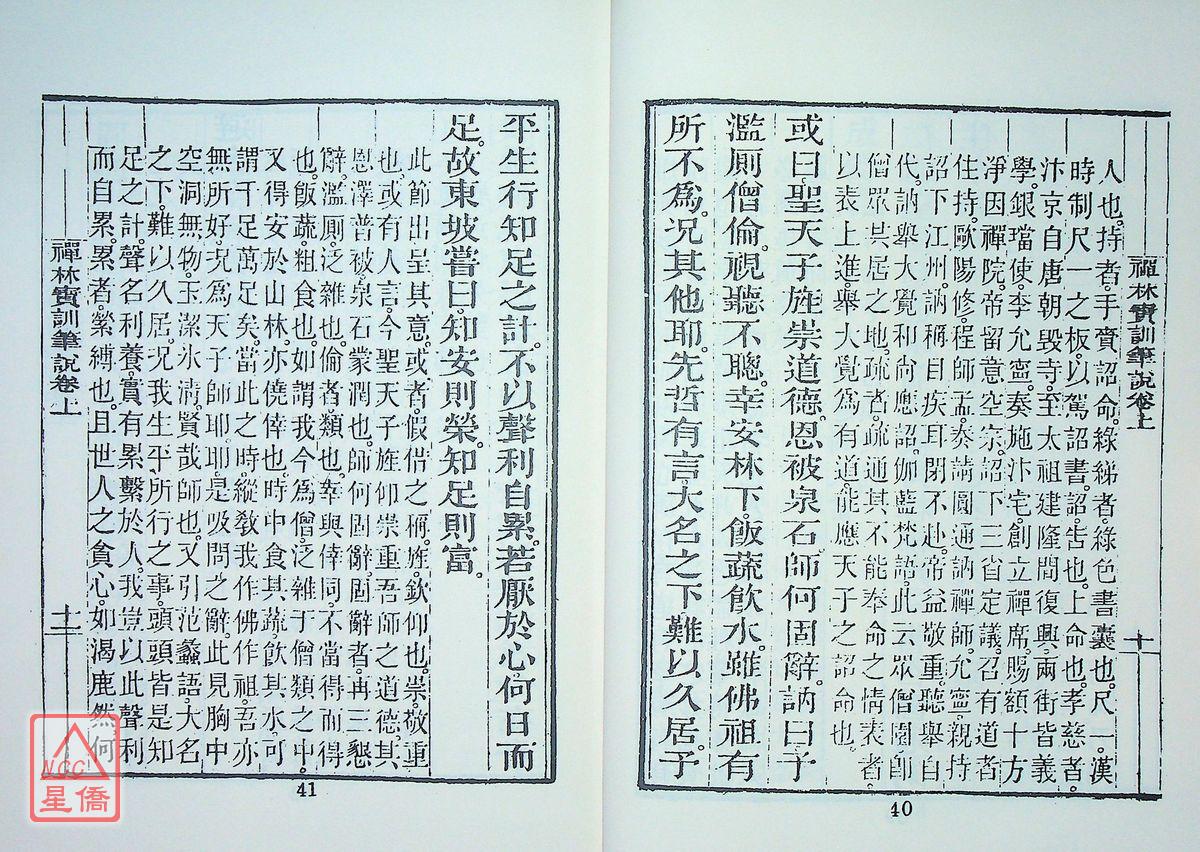 禪林寶訓筆說卷上
十
人也。持者。手賷詔命。綠綈者。綠色書囊也。尺一。漢
時制尺一之板。以駕詔書。詔。告也。上命也。孝慈者。
汴京自唐朝毀寺。至太祖建隆間復興。兩街皆義
學。銀璫使。李允寧。奏施汴宅。創立禪席。賜額十方
淨因禪院。帝留意空宗。詔下三省定議。召有道者
住持。歐陽修。程師孟。奏請圓通訥禪師。允寧親持
詔下江州。訥稱目疾耳閉不赴。帝益敬重。聽舉自
代。訥舉大覺和尚應詔。伽藍梵語。此云眾僧園。即
僧眾共居之地。疏者。疏通其不能奉命之情。表者。
以表上進。舉大覺為有道。能應天子之詔命也。
或曰聖天子旌崇道德。恩被泉石。師何固辭。訥曰。子
濫厠僧倫。視聽不聰。幸安林下。飯蔬飲水。雖佛祖有
所不為。況其他耶。先哲有言。大名之下難以久居。子
40
平生行知足之計。不以聲利自累。若厭於心。何日而
足。故東坡嘗曰。知安則榮。知足則富。
此節出呈其意。或者。假借之稱。旌。欽仰也。崇。敬重
也。或有人言。今聖天子旌仰崇重吾師之道德。其
恩澤普被。泉石蒙潤也。師何固辭。固辭者。再三懇
辭。濫厠。泛雜也。倫者。類也。幸與倖同。不當得而得
也。飯蔬。粗食也。如謂我今為僧。泛雜于僧類之中。
又得安於山林。亦僥倖也。時中食其蔬。飲其水。可
謂千足萬足矣。當此之時。縱教我作佛作祖。吾亦
無所好。況為天子師耶。耶是吸問之辭。此見胸中
空洞無物。玉潔氷清。賢哉師也。又引范蠡語。大名
之下。難以久居。況我生平所行之事。頭頭皆是知
足之計。聲名利養。實有累繫於人。我豈以此聲利
而自累。累者。縈縛也。且世人之貪心。如渴鹿然。何
禪林寶訓筆說卷上
十一
41
NCC
星僑